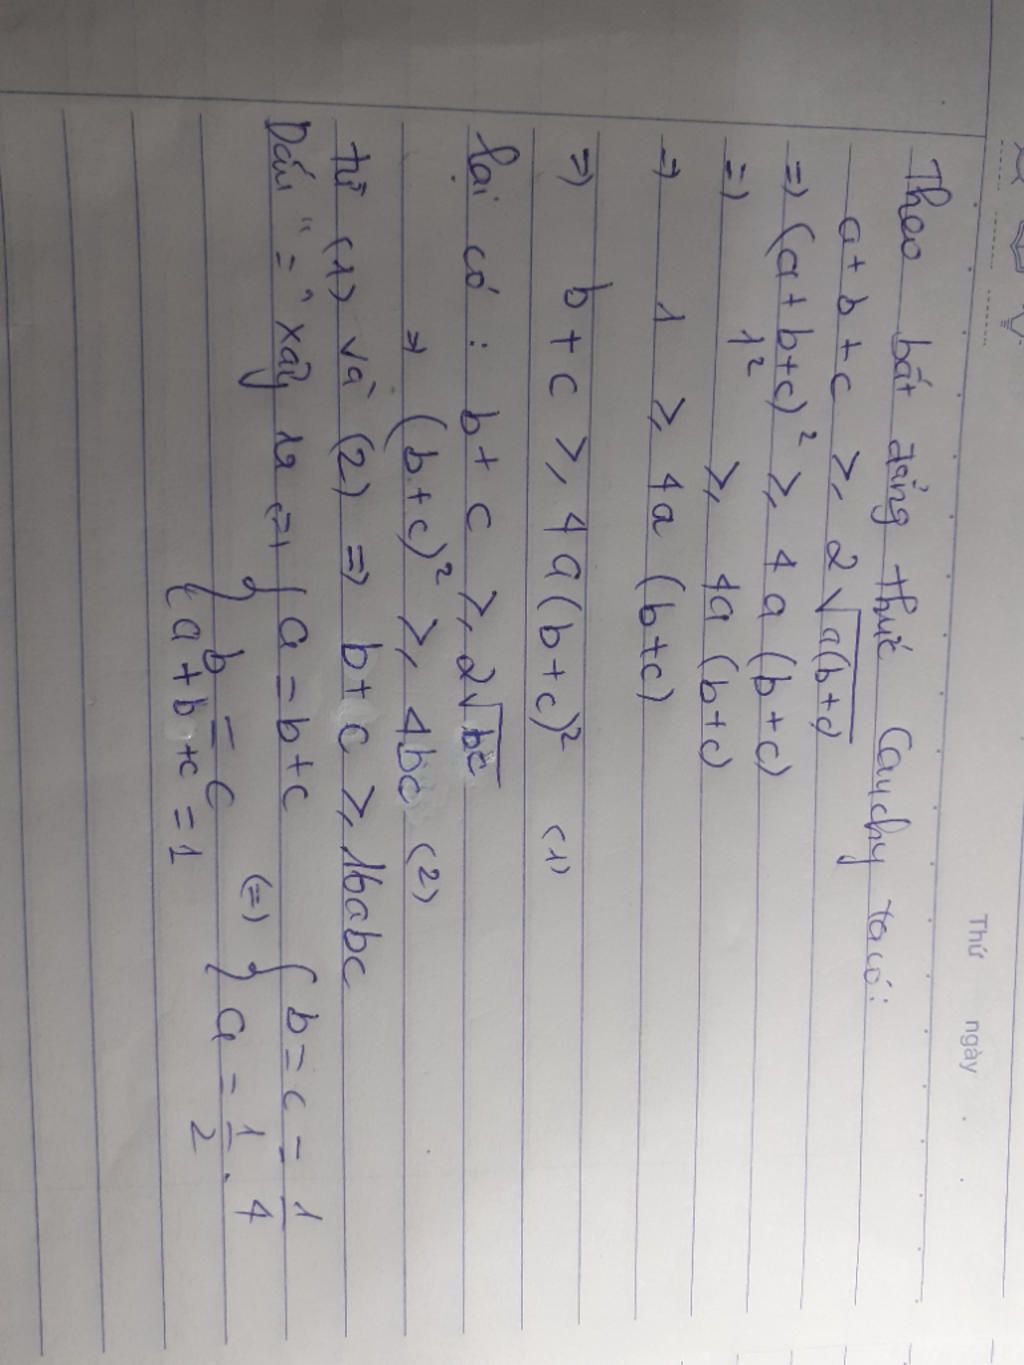 Thứ ngày
Theo bất đẳng thức Cauchy ta có:
a + b + c ≥ 2√a(b+c)
=> (a + b + c)² ≥ 4a (b + c)
=> 1² ≥ 4a (b+c)
=> 1 ≥ 4a (b+c)
=> b + c ≥ 4a(b+c)² (1)
lại có : b + c ≥ 2√bc
=> (b+c)² ≥ 4bc (2)
từ (1) và (2) => b + c ≥ 16abc
Dấu "=" xảy ra (=) { a = b + c
b = c
a + b + c = 1
(=) { b = c = 1/4
a = 1/2